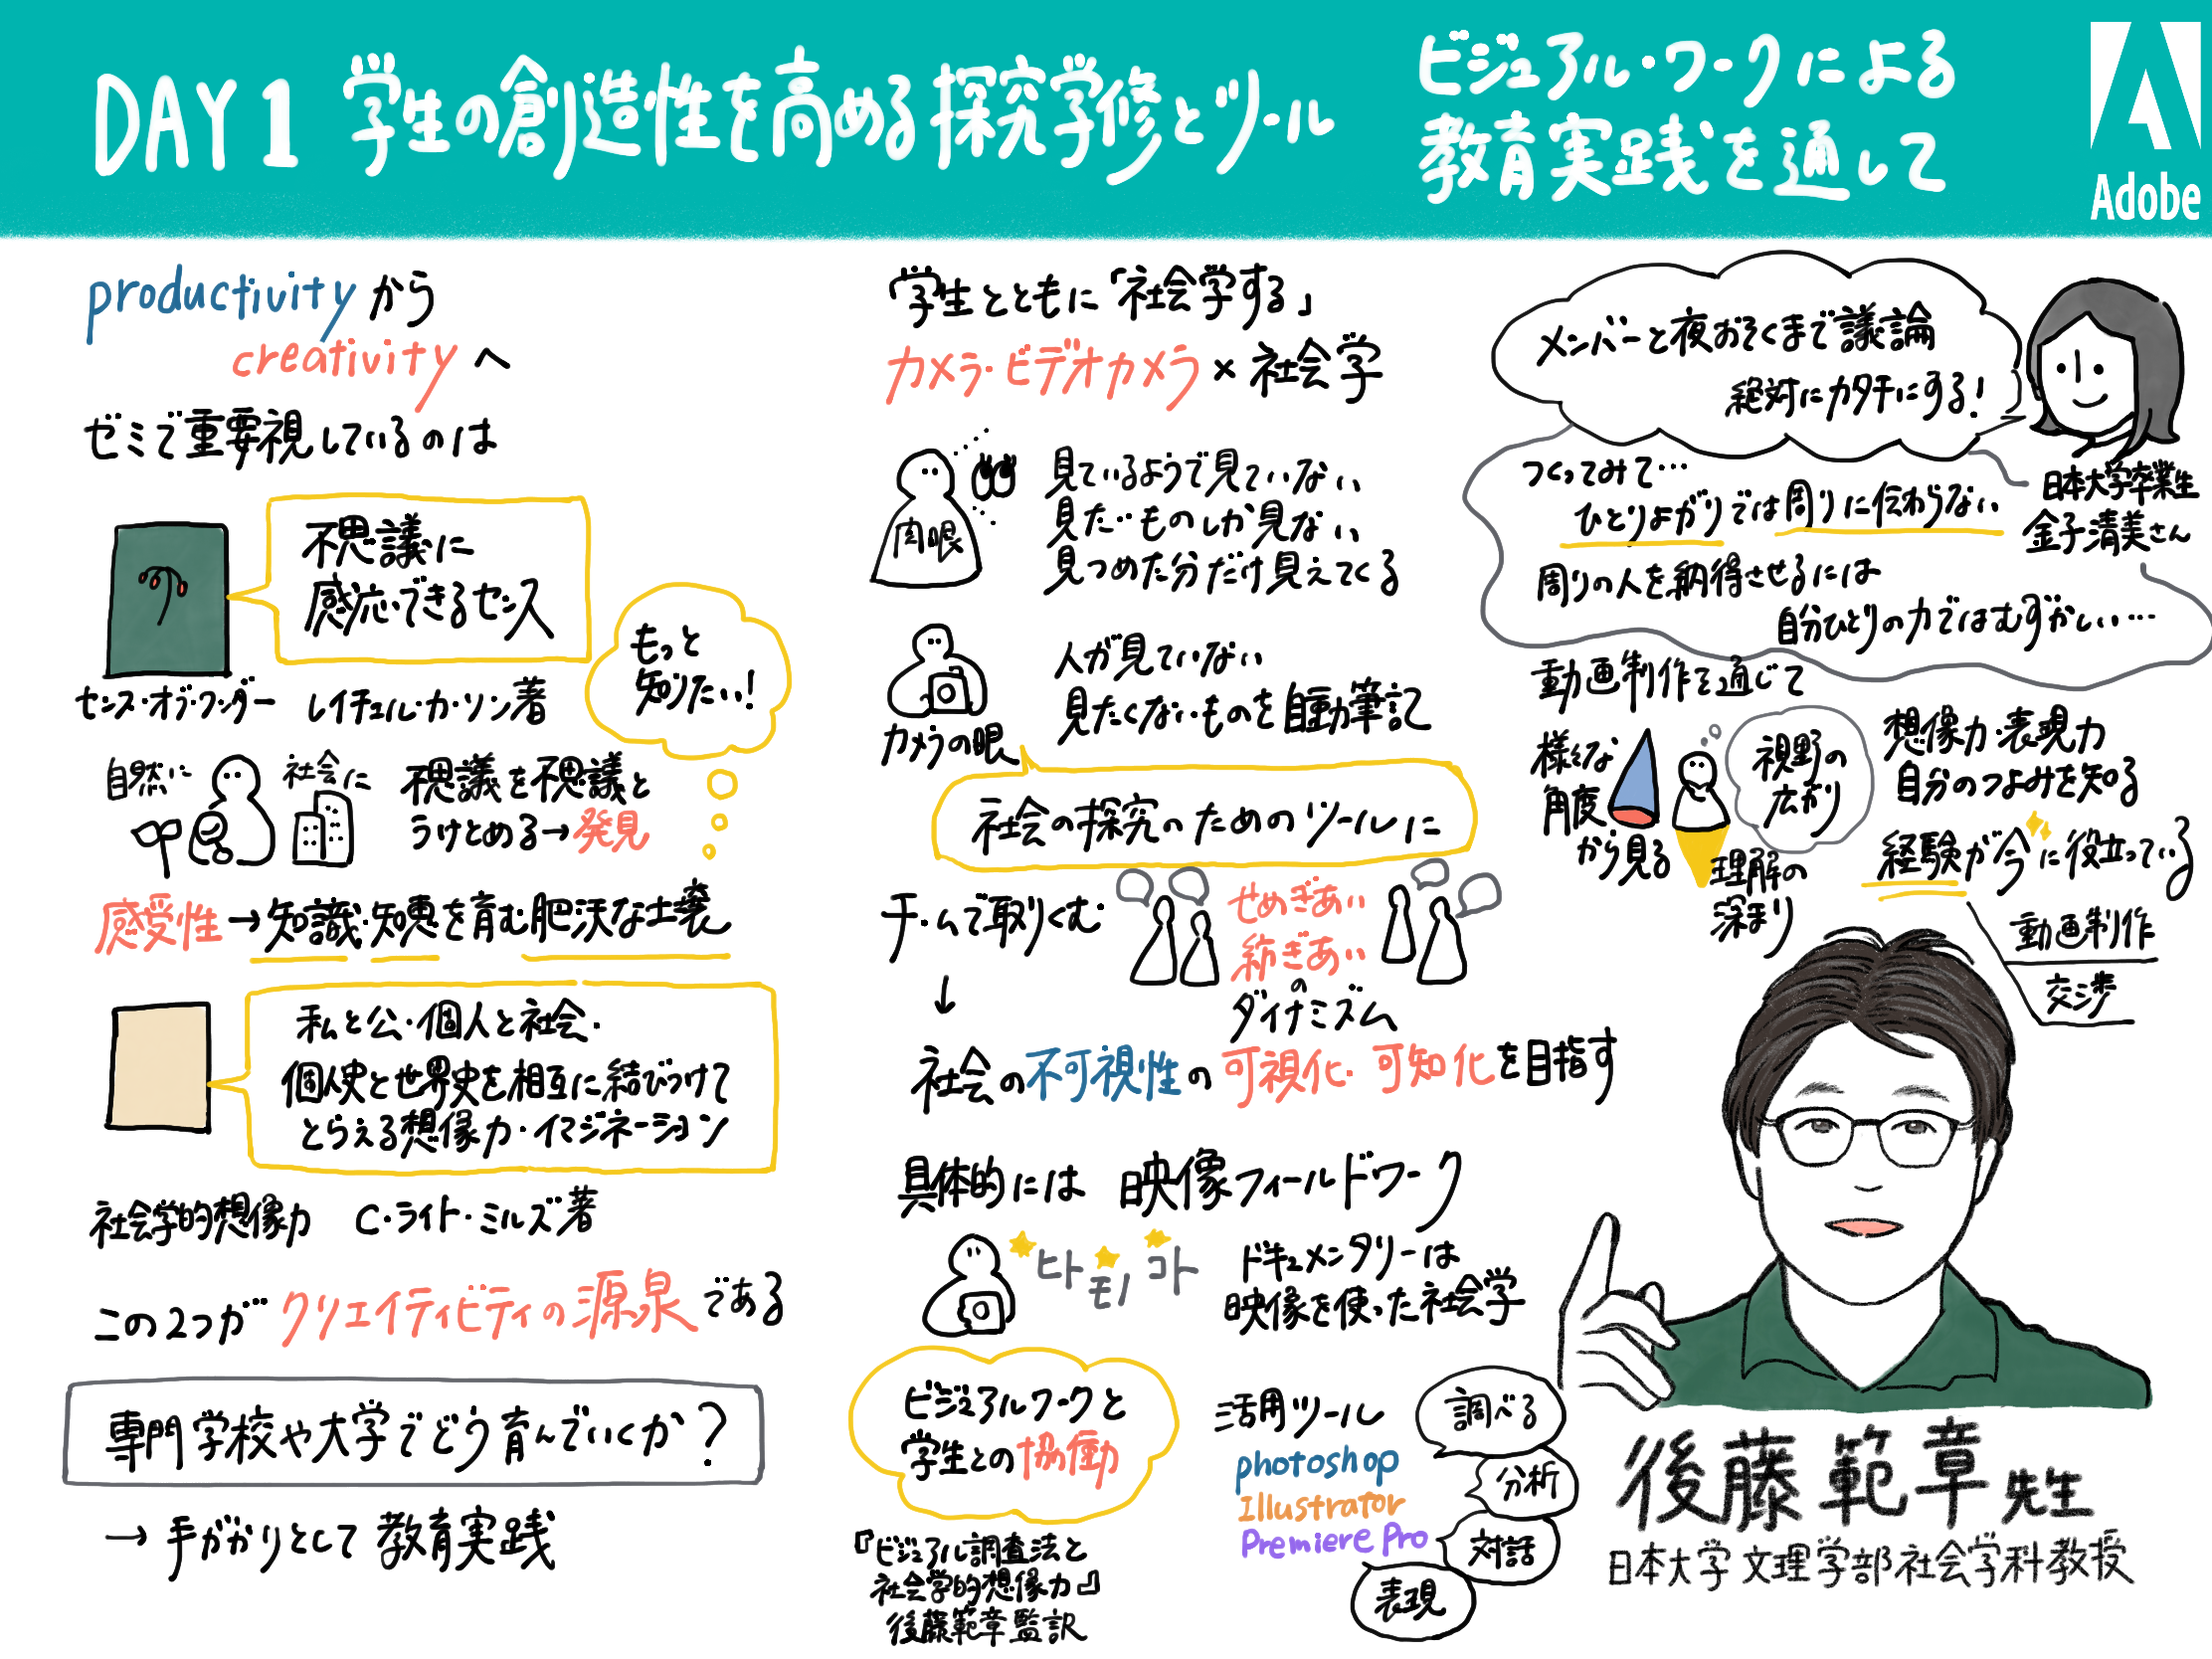 DAY1 学生の創造性を高める探究学修とツール
ビジュアル・ワークによる
教育実践を通して
Adobe
productivityから
creativityへ
ゼミで重要視しているのは
不思議に
感応できるセンス
センス・オブ・ワンダー レイチェル・カーソン著
もっと
知りたい!
自然に
社会に
不思議を不思議と
うけとめる→発見
感受性→知識・知恵を育む肥沃な土壌
私と公・個人と社会・
個人史と世界史を相互に結びつけて
とらえる想像力・イマジネーション
社会学的想像力 C・ライト・ミルズ著
この2つがクリエイティビティの源泉である
専門学校や大学でどう育んでいくか?
→手がかりとして教育実践
学生とともに「社会学する」
カメラ・ビデオカメラ×社会学
肉眼
見ているようで見ていない
見た…ものしか見ない
見つめた分だけ見えてくる
カメラの眼
人が見ていない
見たくないものを自動筆記
社会の探究のためのツールに
チームで取りくむ
せめぎあい
紡ぎあい
の
ダイナミズム
↓
社会の不可視性の可視化・可知化を目指す
具体的には 映像フィールドワーク
ヒト
モノ
コト
ドキュメンタリーは
映像を使った社会学
ビジュアルワークと
学生との協働
『ビジュアル調査法と
社会学的想像力』
後藤範章監訳
活用ツール
photoshop
Illustrator
Premiere Pro
調べる
分析
対話
表現
メンバーと夜おそくまで議論
絶対にカタチにする!
日本大学卒業生
金子清美さん
つくってみて…
ひとりよがりでは周りに伝わらない
周りの人を納得させるには
自分ひとりの力ではむずかしい…
動画制作を通じて
様々な
角度
から見る
視野の
広がり
理解の
深まり
想像力・表現力
自分のつよみを知る
経験が今に役立っている
動画制作
交渉
後藤範章先生
日本大学文理学部社会学科教授